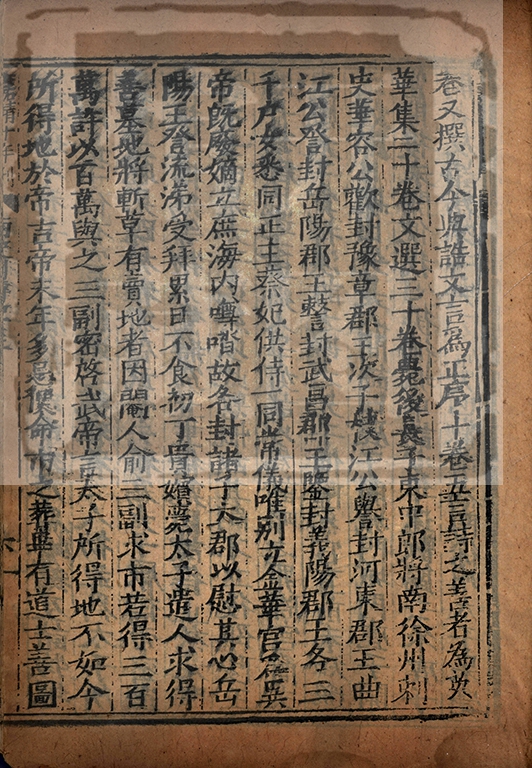 卷又撰古今典誥文言爲正序十卷五言詩之善者為英
華集二十卷文選三十卷薨後長子東中郎將南徐州刺
史華容公歡封豫章郡王次子枝江公譽封河東郡王曲
江公詧封岳陽郡王警封武昌郡王鑒封義陽郡王各三
千戶女悉同正主蔡妃供侍一同常儀唯别立金華宫為異
帝既廢嫡立庶海内噂㗳故各封諸子大郡以慰其心岳
陽王詧流涕受拜累日不食初丁貴嬪薨太子遣人求得
善墓地將斬草有賣地者因閹人俞三副求市若得三百
萬許以百萬與之三副密啓武帝言太子所得地不如今
所得地於帝吉帝末年多忌便命市之葬畢有道士善圖